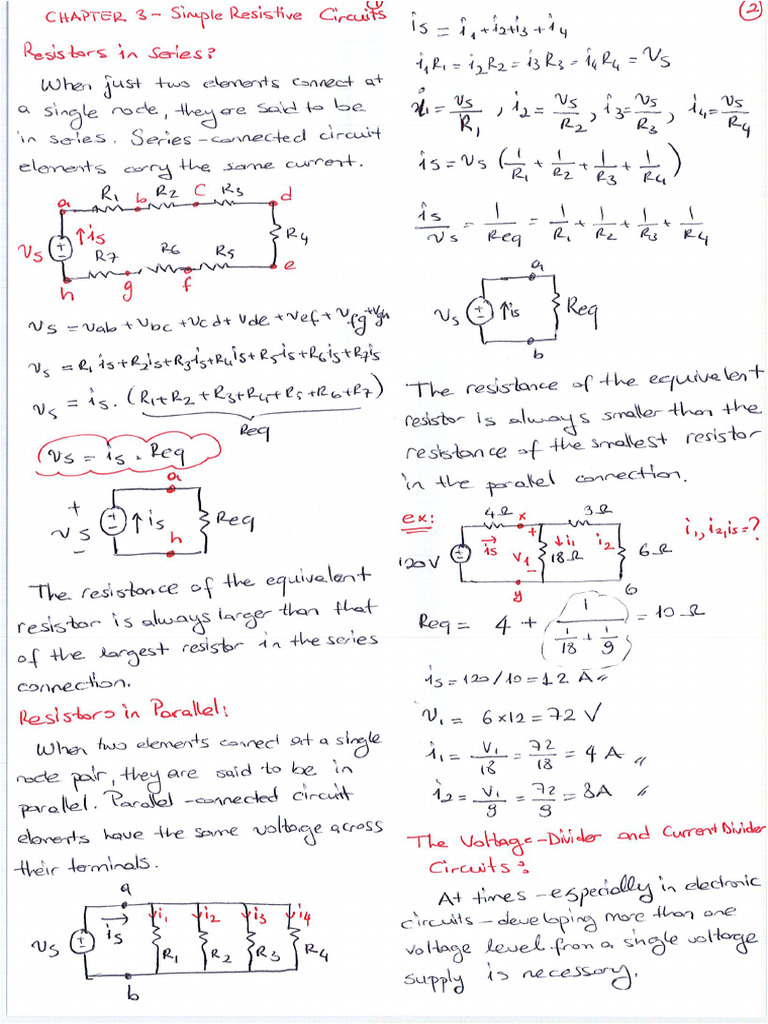 CHAPTER 3 - Simple Resistive Circuits
①
Resistors in Series:
When just two elements connect at
a single node, they are said to be
in series. Series-connected circuit
elements carry the same current.
a R1 b R2 c R3 d
Vs ↑is R4
h R7 g R6 f R5 e
Vs = Vab + Vbc + Vcd + Vde + Vef + Vfg + Vgh
Vs = R1 is + R2 is + R3 is + R4 is + R5 is + R6 is + R7 is
Vs = is . (R1 + R2 + R3 + R4 + R5 + R6 + R7)
Req
Vs = is . Req
a
+ Vs - ↑is Req
h
The resistance of the equivalent
resistor is always larger than that
of the largest resistor in the series
connection.
Resistors in Parallel:
When two elements connect at a single
node pair, they are said to be in
parallel. Parallel-connected circuit
elements have the same voltage across
their terminals.
a
Vs → is ↓i1 ↓i2 ↓i3 ↓i4
R1 R2 R3 R4
b
②
is = i1 + i2 + i3 + i4
i1R1 = i2R2 = i3R3 = i4R4 = Vs
i1 = Vs/R1 , i2 = Vs/R2 , i3 = Vs/R3 , i4 = Vs/R4
is = Vs (1/R1 + 1/R2 + 1/R3 + 1/R4)
is/Vs = 1/Req = 1/R1 + 1/R2 + 1/R3 + 1/R4
a
Vs ↑is Req
b
The resistance of the equivalent
resistor is always smaller than the
resistance of the smallest resistor
in the parallel connection.
ex: 4Ω x 3Ω i1, i2, is = ?
120V → is + V1 - ↓i1 18Ω i2 6Ω
y
6
Req = 4 + 1/(1/18 + 1/9) = 10 Ω
is = 120/10 = 12 A //
V1 = 6 x 12 = 72 V
i1 = V1/18 = 72/18 = 4 A //
i2 = V1/9 = 72/9 = 8A //
The Voltage-Divider and Current Divider
Circuits:
At times - especially in electronic
circuits - developing more than one
voltage level from a single voltage
supply is necessary.